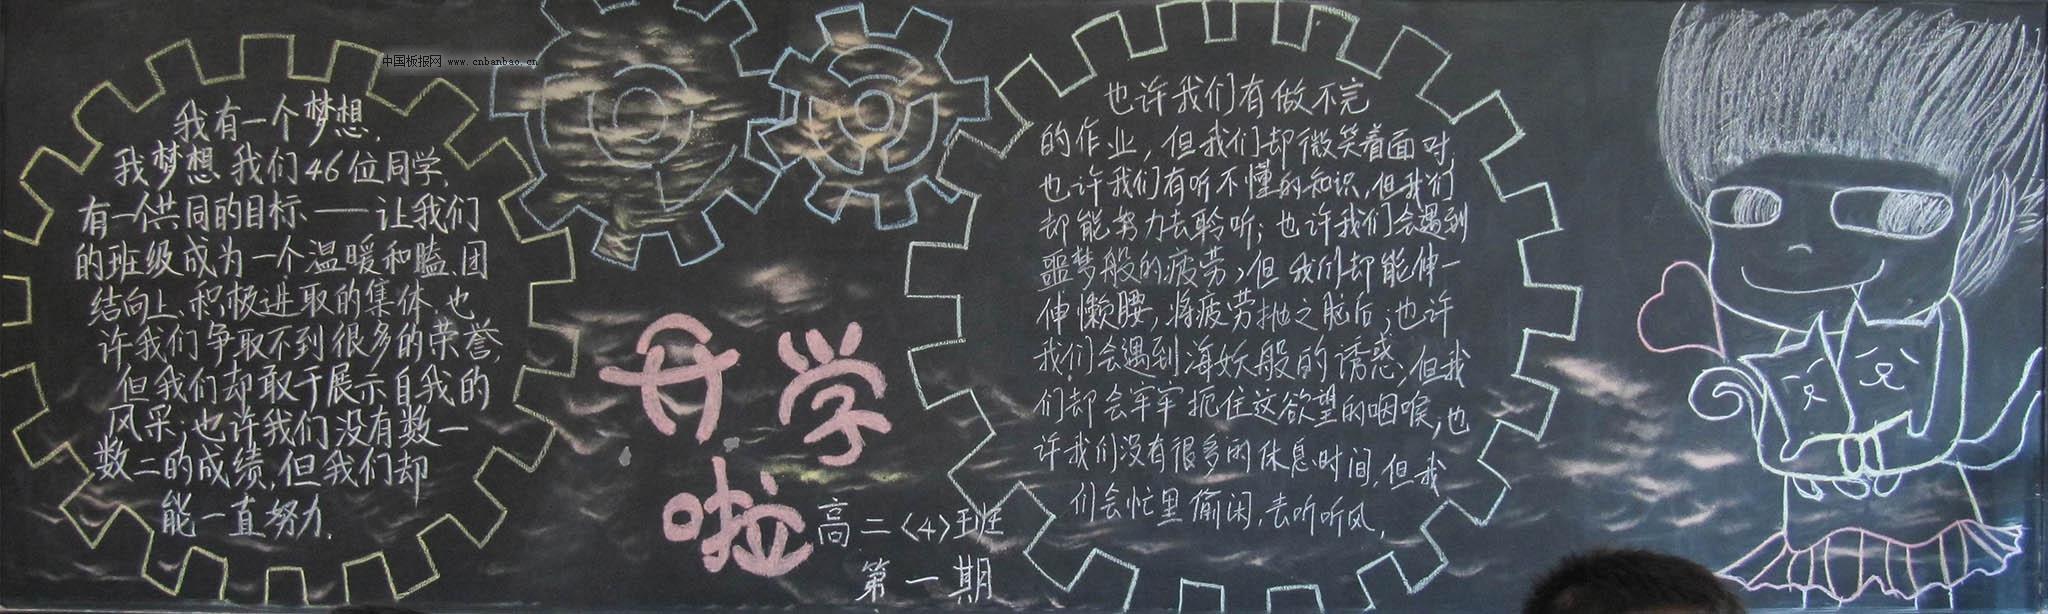 中国板报网 www.cnbanbao.cn
我有一个梦想，
我梦想我们46位同学，
有一个共同的目标——让我们
的班级成为一个温暖和瞌、团
结向上、积极进取的集体。也
许我们争取不到很多的荣誉，
但我们却敢于展示自我的
风采；也许我们没有数一
数二的成绩，但我们却
能一直努力。
开学
啦
高二<4>班
第一期
也许我们有做不完
的作业，但我们却微笑着面对，
也许我们有听不懂的知识，但我们
却能努力去聆听；也许我们会遇到
噩梦般的疲劳，但我们却能伸一
伸懒腰，将疲劳抛之脑后；也许
我们会遇到海妖般的诱惑，但我
们却会牢牢扼住这欲望的咽喉；也
许我们没有很多的休息时间，但我
们会忙里偷闲，去听听风。